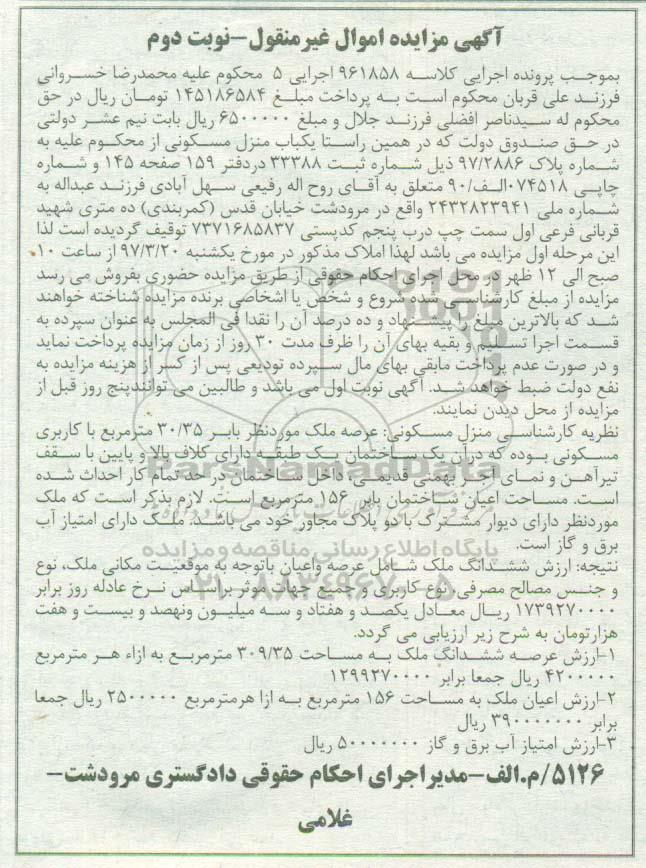 آگهی مزایده اموال غیرمنقول-نوبت دوم
بموجب پرونده اجرایی کلاسه ۹۶۱۸۵۸ اجرایی ۵ محکوم علیه محمدرضا خسروانی
فرزند علی قربان محکوم است به پرداخت مبلغ ۱۴۵۱۸۶۵۸۴ تومان ریال در حق
محکوم له سیدناصر افضلی فرزند جلال و مبلغ ۶۵۰۰۰۰۰ ریال بابت نیم عشر دولتی
در حق صندوق دولت که در همین راستا یکباب منزل مسکونی از محکوم علیه به
شماره پلاک ۹۷/۲۸۸۶ ذیل شماره ثبت ۳۳۳۸۸ دردفتر ۱۵۹ صفحه ۱۴۵ و شماره
چاپی ۰۷۴۵۱۸الف/۹۰ متعلق به آقای روح اله رفیعی سهل آبادی فرزند عبداله به
شماره ملی ۲۴۳۲۸۲۳۹۴۱ واقع در مرودشت خیابان قدس (کمربندی) ده متری شهید
قربانی فرعی اول سمت چپ درب پنجم کدپستی ۷۳۷۱۶۸۵۸۳۷ توقیف گردیده است لذا
این مرحله اول مزایده می باشد لهذا املاک مذکور در مورخ یکشنبه ۹۷/۳/۲۰ از ساعت ۱۰
صبح الی ۱۲ ظهر در محل اجرای احکام حقوقی از طریق مزایده حضوری بفروش می رسد
مزایده از مبلغ کارشناسی شده شروع و شخص یا اشخاصی برنده مزایده شناخته خواهند
شد که بالاترین مبلغ را پیشنهاد و ده درصد آن را نقدا فی المجلس به عنوان سپرده به
قسمت اجرا تسلیم و بقیه بهای آن را ظرف مدت ۳۰ روز از زمان مزایده پرداخت نماید
و در صورت عدم پرداخت مابقی بهای مال سپرده تودیعی پس از کسر از هزینه مزایده به
نفع دولت ضبط خواهد شد. آگهی نوبت اول می باشد و طالبین می توانندپنج روز قبل از
مزایده از محل دیدن نمایند.
نظریه کارشناسی منزل مسکونی: عرصه ملک موردنظر بابر ۳۰/۳۵ مترمربع با کاربری
مسکونی بوده که درآن یک ساختمان یک طبقه دارای کلاف بالا و پایین با سقف
تیرآهن و نمای آجر بهمنی قدیمی، داخل ساختمان در حد تمام کار احداث شده
است. مساحت اعیان ساختمان بابر ۱۵۶ مترمربع است. لازم بذکر است که ملک
موردنظر دارای دیوار مشترک بادو پلاک مجاور خود می باشد. ملک دارای امتیاز آب
برق و گاز است.
نتیجه: ارزش ششدانگ ملک شامل عرصه واعیان باتوجه به موقعیت مکانی ملک، نوع
و جنس مصالح مصرفی نوع کاربری و جمیع جهات موثر براساس نرخ عادله روز برابر
۱۷۳۹۲۷۰۰۰۰ ریال معادل یکصد و هفتاد و سه میلیون ونهصد و بیست و هفت
هزارتومان به شرح زیر ارزیابی می گردد.
۱-ارزش عرصه ششدانگ ملک به مساحت ۳۰۹/۳۵ مترمربع به ازاء هر مترمربع
۴۲۰۰۰۰۰ ریال جمعا برابر ۱۲۹۹۲۷۰۰۰۰
۲-ارزش اعیان ملک به مساحت ۱۵۶ مترمربع به ازا هرمترمربع ۲۵۰۰۰۰۰ ریال جمعا
برابر ۳۹۰۰۰۰۰۰۰ ریال
۳-ارزش امتیاز آب برق و گاز ۵۰۰۰۰۰۰۰ ریال
۵۱۲۶/م.الف-مدیراجرای احکام حقوقی دادگستری مرودشت-
غلامی
ParsNamadData
پایگاه اطلاع رسانی مناقصه و مزایده